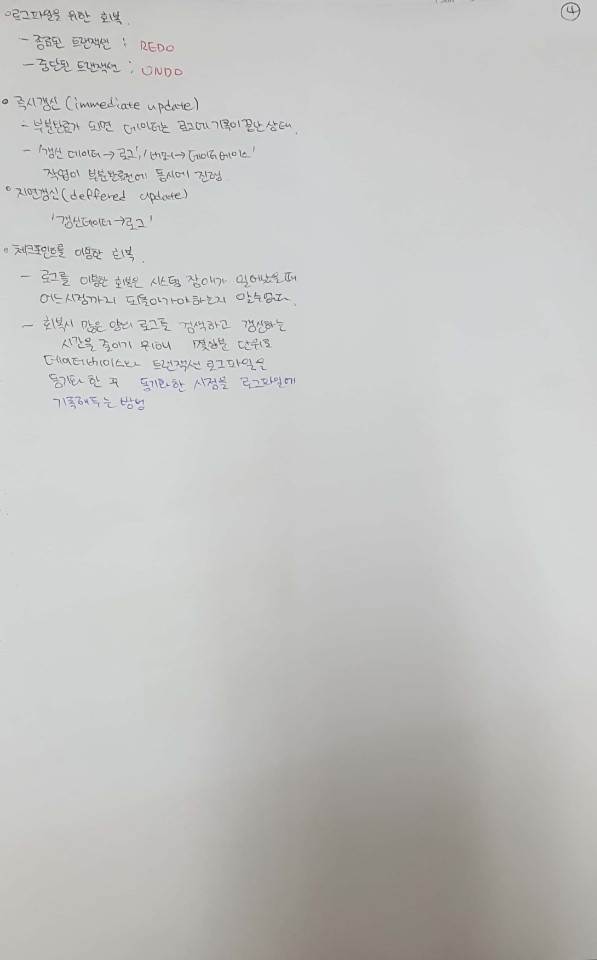 ④
○로그파일을 위한 회복.
- 종료된 트랜잭션 : REDO
- 중단된 트랜잭션 : UNDO
○ 즉시갱신 (immediate update)
- 부분완료가 되면 데이터는 로그에 기록이 끝난 상태.
- '갱신 데이터→로그', '버퍼→데이터베이스'
작업이 부분완료전에 동시에 진행
○ 지연갱신(deffered update)
'갱신데이터→로그'
○ 체크포인트를 이용한 회복.
- 로그를 이용한 회복은 시스템 장애가 일어났을때
어느시점까지 되돌아가야하는지 알수없다.
- 회복시 많은 양의 로그를 검색하고 갱신하는
시간을 줄이기 위하여 몇십분 단위로
데이터베이스와 트랜잭션 로그파일을
동기화 한 후 동기화한 시점을 로그파일에
기록해두는 방법